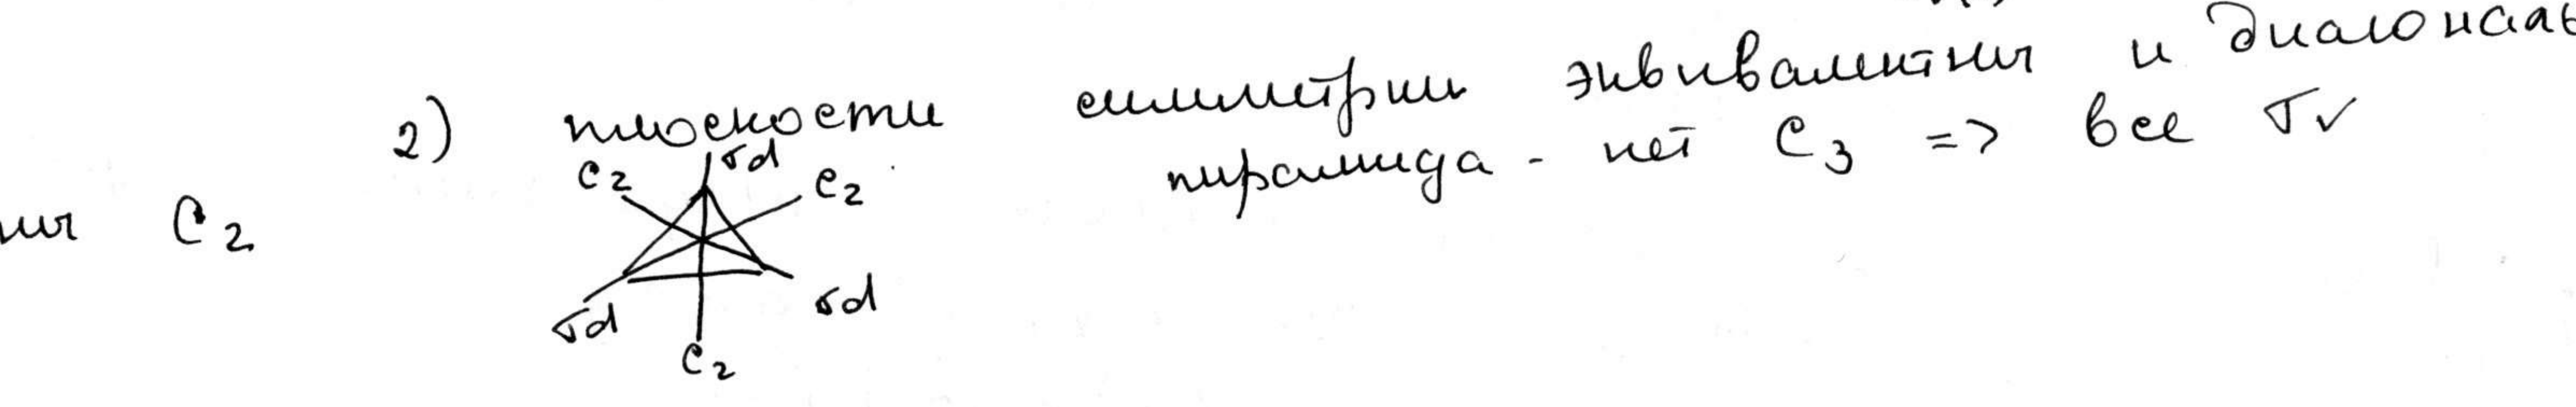 2) плоскости симметрии эквивалентны и диагональ
пирамида - нет C₃ => все σᵥ
C₂ σd C₂
ны C₂
σd σd
C₂